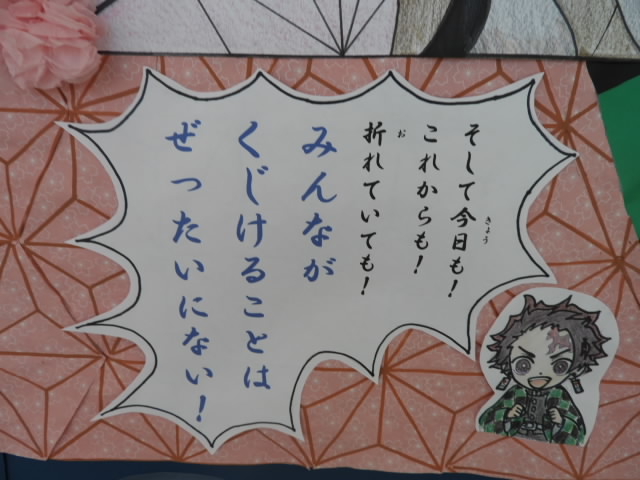 そして今日も!
きょう
これからも!
折れていても!
お
みんなが
くじけることは
ぜったいにない!